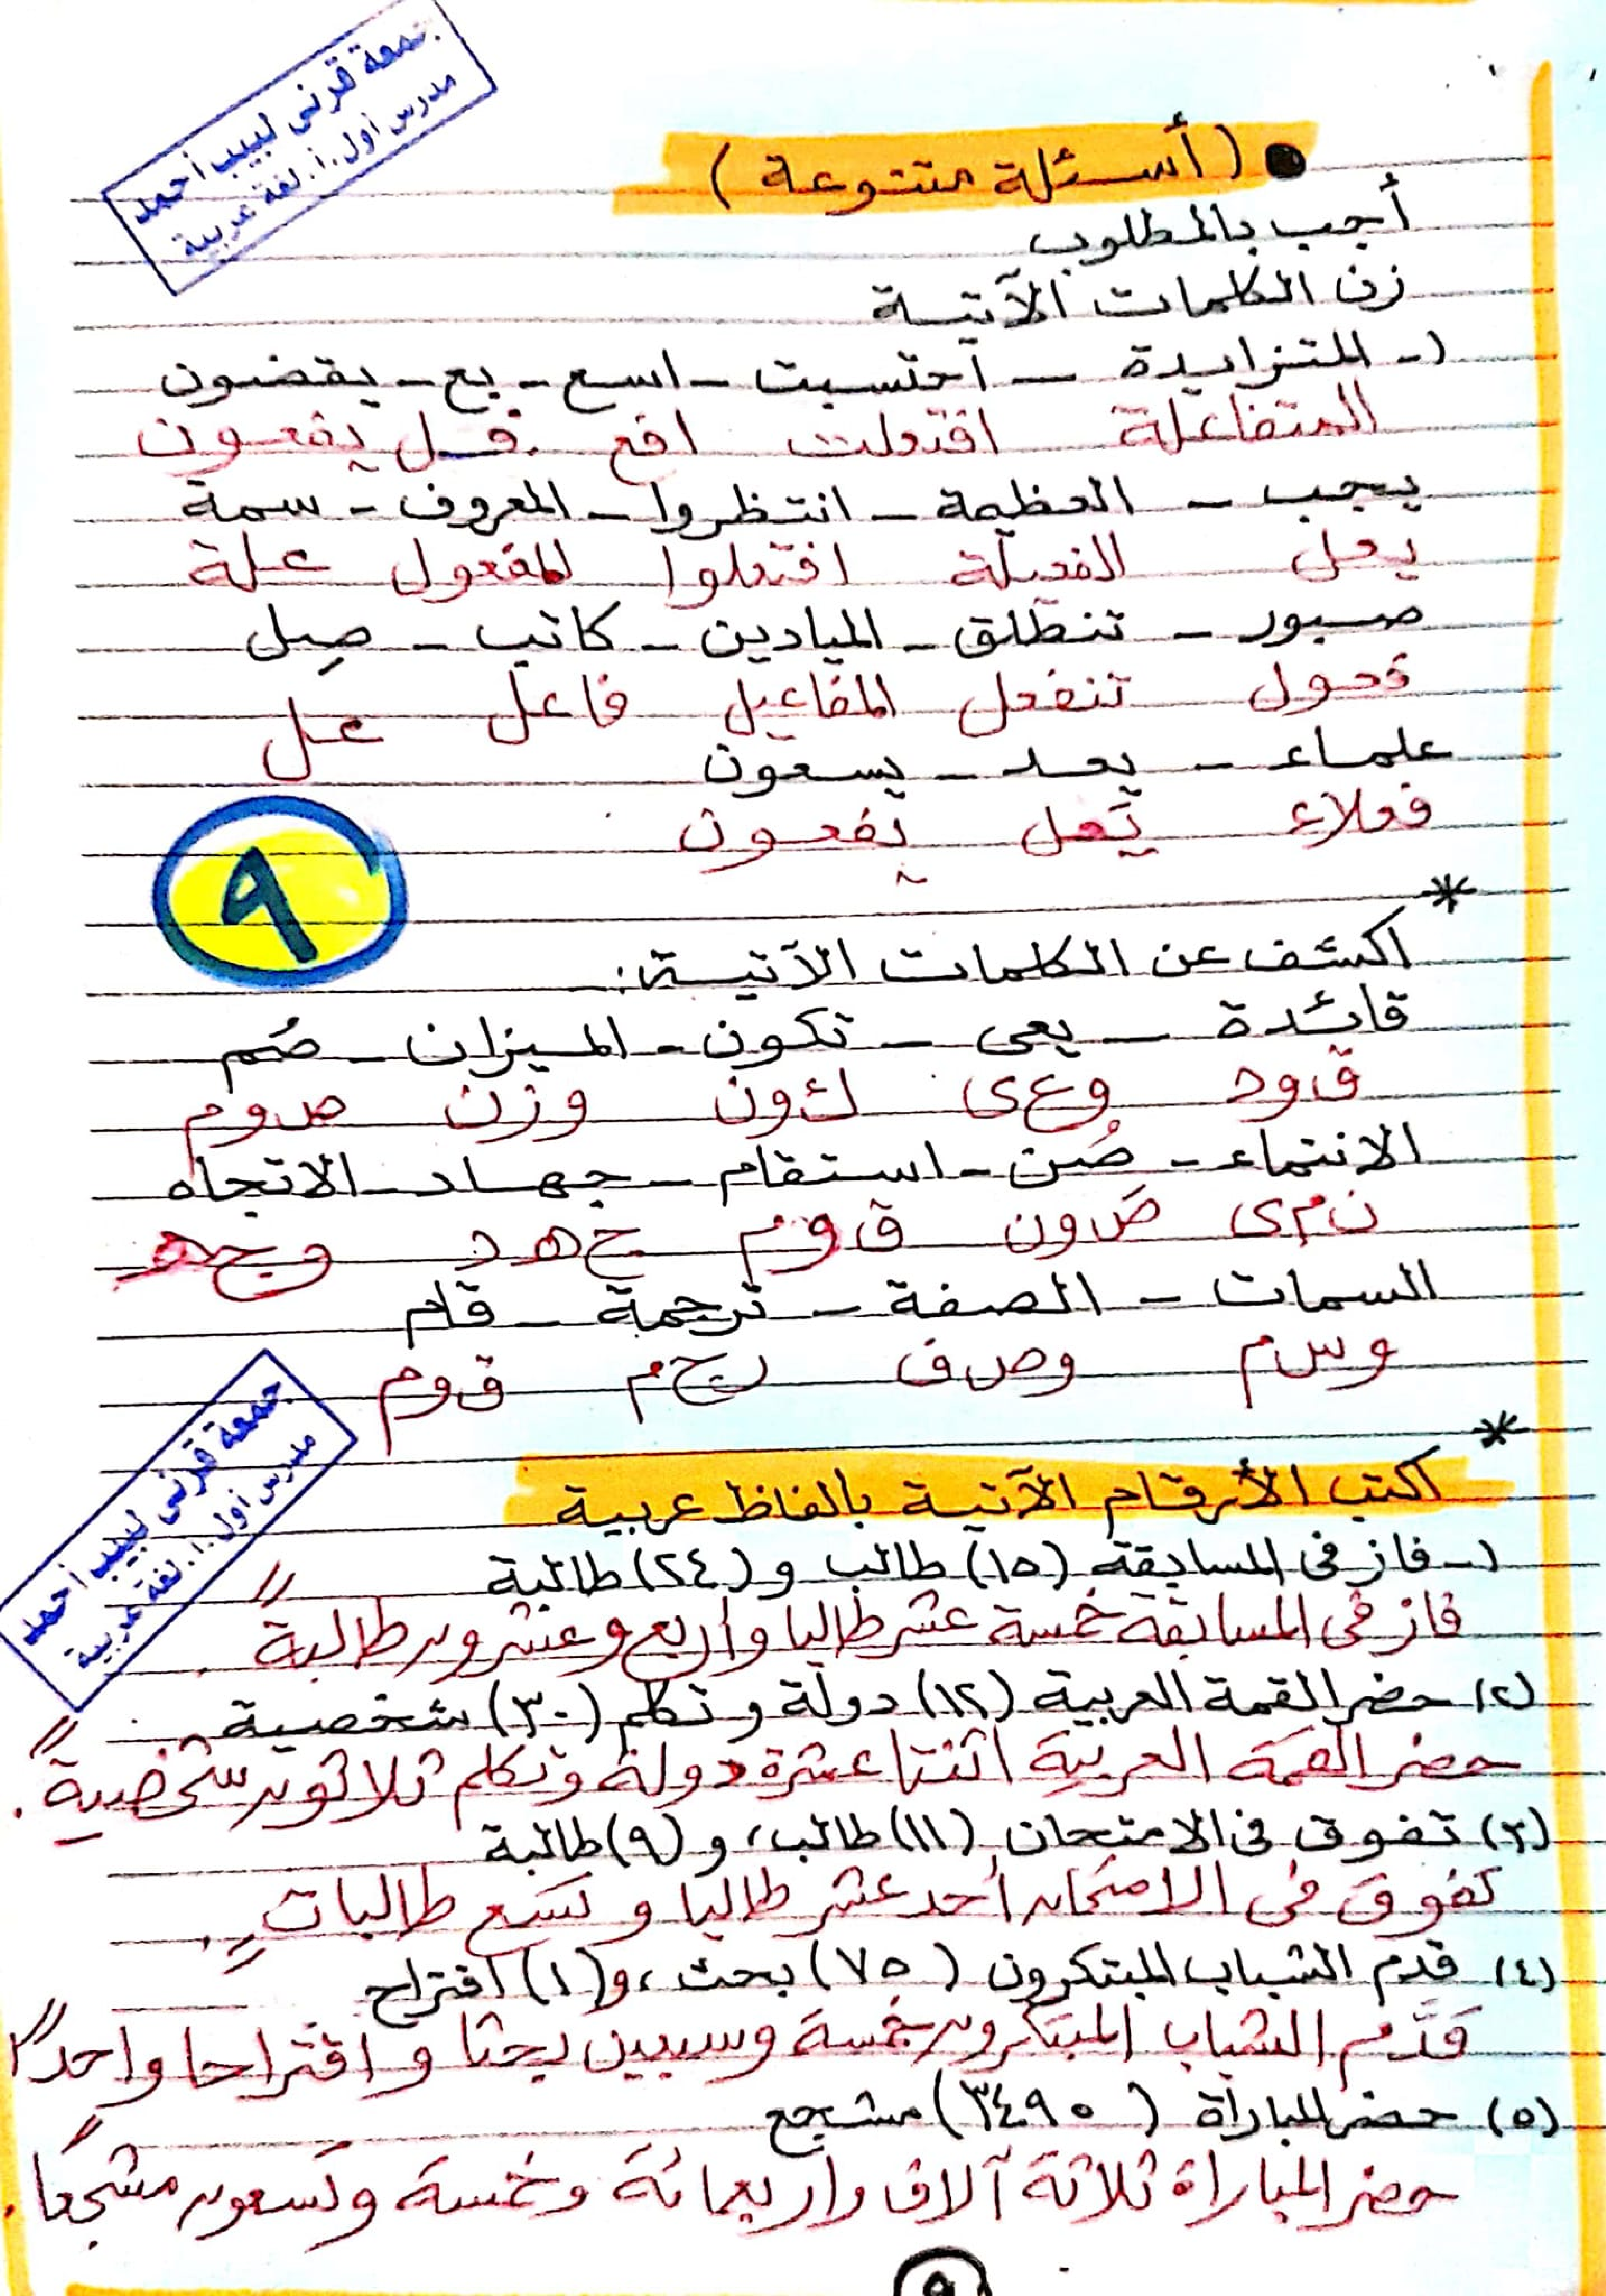 جمعة قرنى لبيب أحمد
مدرس أول.أ.لغة عربية
● (أسئلة متنوعة)
أجب بالمطلوب
زن الكلمات الآتية
١- المتزايدة - احتسبت - اسع - بع - يقضون
المتفاعلة افتعلت افع فل يفعون
يجب - العظيمة - انتظروا - المعروف - سمة
يعل الفعيلة افتعلوا المفعول علة
صبور - تنطلق - الميادين - كاتب - صِل
فعول تنفعل المفاعيل فاعل عل
علماء - يعد - يسعون
فعلاء يَعل يفعون
٩
*
اكشف عن الكلمات الآتية:
قائدة - يعى - تكون - الميزان - صُم
ق ود وعى ك ون وزن ص وم
الانتماء - صُن - استقام - جهاد - الاتجاه
ن م ى ص ون ق وم ج ه د وج ه
السمات - الصفة - ترجمة - قام
وس م وص ف رج م ق وم
*
اكتب الأرقام الآتية بالفاظ عربية
جمعة قرنى لبيب أحمد
مدرس أول.أ.لغة عربية
١- فاز فى المسابقة (١٥) طالب و(٢٤) طالبة
فاز فى المسابقة خمسة عشر طالبا وأربع وعشرون طالبةً.
(٢) حضر القمة العربية (١٢) دولة وتكلم (٣٠) شخصية
حضر القمة العربية اثنتا عشرة دولة وتكلم ثلاثون شخصيةً.
(٣) تفوق فى الامتحان (١١) طالب، و(٩) طالبة
تفوق فى الامتحان أحد عشر طالبا وتسع طالباتٍ.
(٤) قدم الشباب المبتكرون (٧٥) بحث، و(١) اقتراح
قدَّم الشباب المبتكرون خمسة وسبعين بحثا واقتراحا واحدًا
(٥) حضر المباراة (٣٤٩٥) مشجع
حضر المباراة ثلاثة آلاف وأربعمائة وخمسة وتسعون مشجعًا.
٩